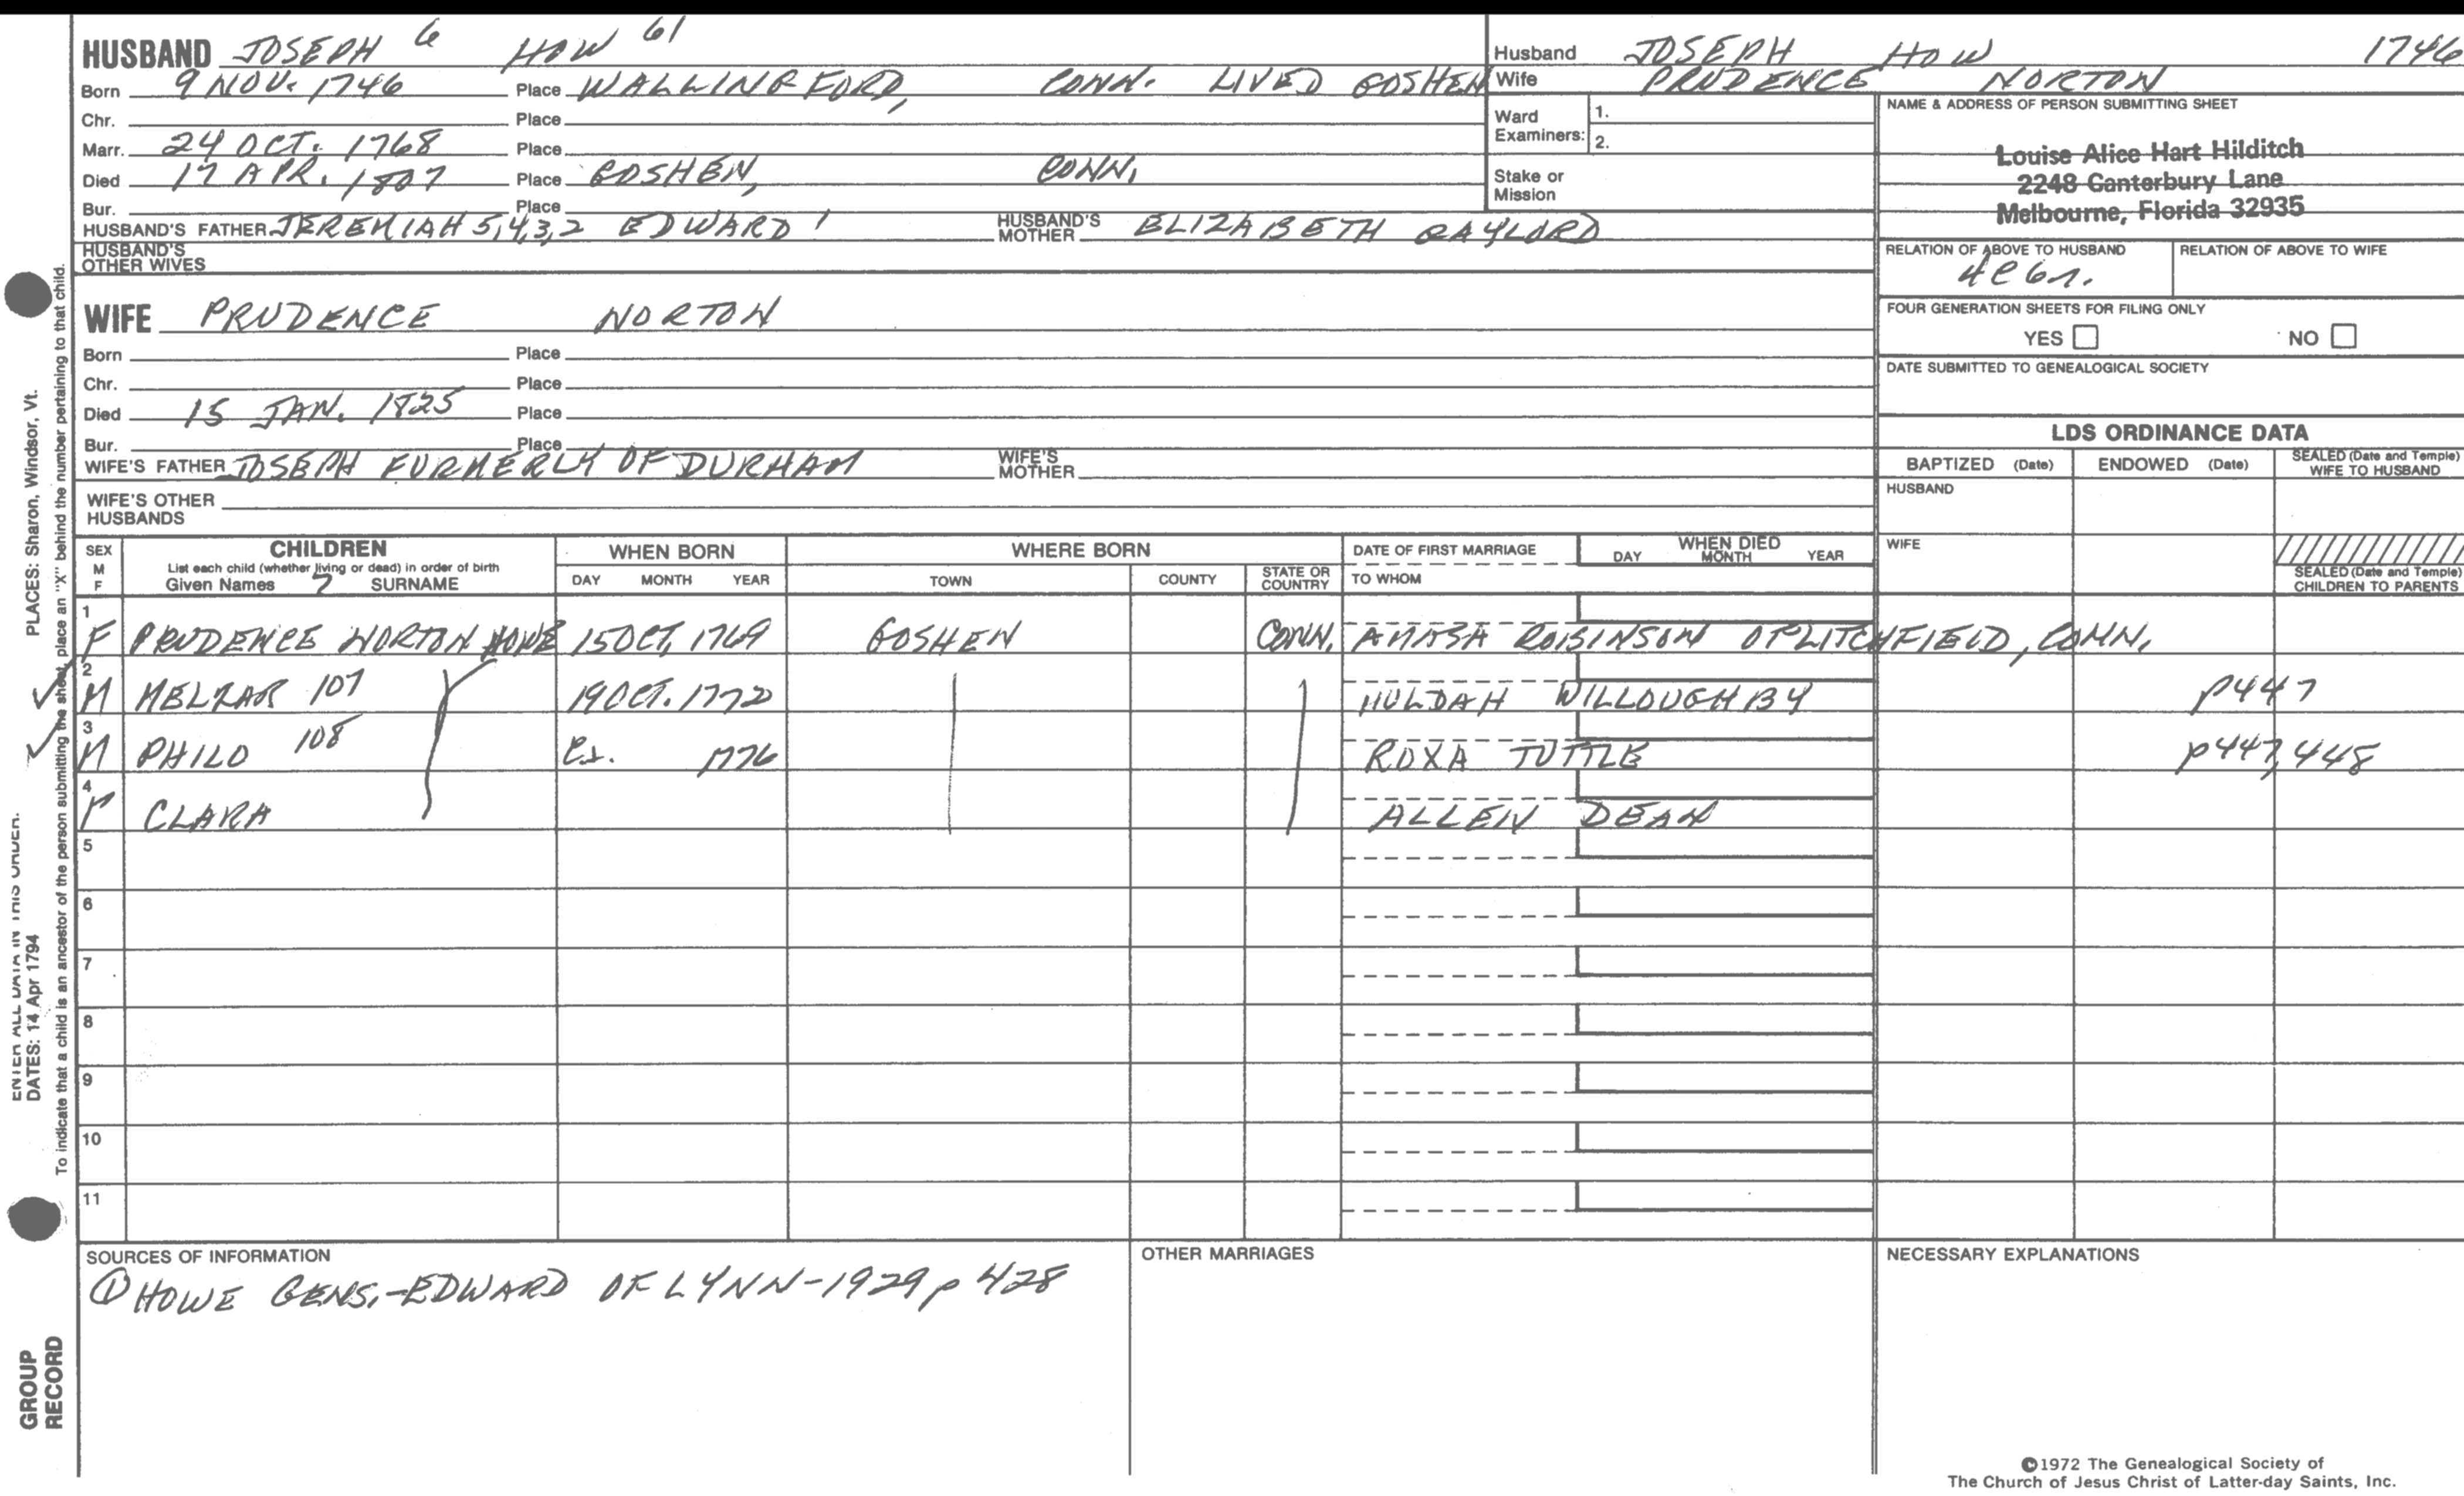 HUSBAND JOSEPH 6 HOW 61
Born 9 NOV. 1746 Place WALLINGFORD, CONN. LIVED GOSHEN
Chr. Place
Marr. 24 OCT. 1768 Place
Died 17 APR. 1807 Place GOSHEN, CONN.
Bur. Place
HUSBAND'S FATHER JEREMIAH 5,4,3,2 EDWARD 1 HUSBAND'S MOTHER ELIZABETH GAYLORD
HUSBAND'S OTHER WIVES
WIFE PRUDENCE NORTON
Born Place
Chr. Place
Died 15 JAN. 1825 Place
Bur. Place
WIFE'S FATHER JOSEPH FORMERLY OF DURHAM WIFE'S MOTHER
WIFE'S OTHER HUSBANDS
Husband JOSEPH HOW 1746
Wife PRUDENCE NORTON
Ward Examiners: 1.
2.
Stake or Mission
NAME & ADDRESS OF PERSON SUBMITTING SHEET
Louise Alice Hart Hilditch
2248 Canterbury Lane
Melbourne, Florida 32935
RELATION OF ABOVE TO HUSBAND RELATION OF ABOVE TO WIFE
FOUR GENERATION SHEETS FOR FILING ONLY
YES NO
DATE SUBMITTED TO GENEALOGICAL SOCIETY
LDS ORDINANCE DATA
BAPTIZED (Date) ENDOWED (Date) SEALED (Date and Temple) WIFE TO HUSBAND
HUSBAND
WIFE
SEALED (Date and Temple) CHILDREN TO PARENTS
SEX M F CHILDREN
List each child (whether living or dead) in order of birth
Given Names 7 SURNAME
WHEN BORN
DAY MONTH YEAR
WHERE BORN
TOWN COUNTY STATE OR COUNTRY
DATE OF FIRST MARRIAGE
TO WHOM
WHEN DIED
DAY MONTH YEAR
1 F PRUDENCE NORTON HOWE 15 OCT. 1769 GOSHEN CONN. AMASA ROBINSON OF LITCHFIELD, CONN.
2 M MELZAR 107 19 OCT. 1772 HULDAH WILLOUGHBY p447
3 M PHILO 108 1776 ROXA TUTTLE p447,448
4 F CLARA ALLEN DEAN
5
6
7
8
9
10
11
SOURCES OF INFORMATION
① HOWE GENS.-EDWARD OF LYNN-1929 p 428
OTHER MARRIAGES
NECESSARY EXPLANATIONS
©1972 The Genealogical Society of
The Church of Jesus Christ of Latter-day Saints, Inc.
PLACES: Sharon, Windsor, Vt.
ENTER ALL DATA IN THIS ORDER:
DATES: 14 Apr 1794
To indicate that a child is an ancestor of the person submitting the sheet, place an "X" behind the number pertaining to that child.
GROUP
RECORD